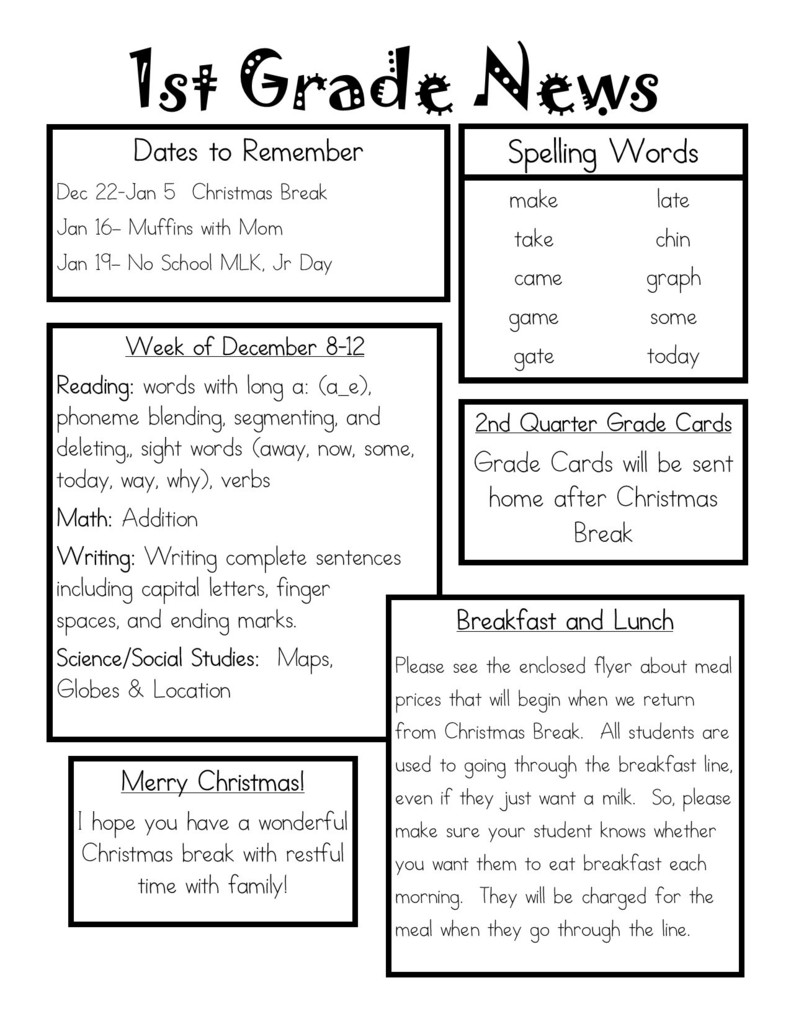 1st Grade News
Dates to Remember
Dec 22-Jan 5  Christmas Break
Jan 16– Muffins with Mom
Jan 19– No School MLK, Jr Day
Spelling Words
make late
take chin
came graph
game some
gate today
Week of December 8-12
Reading: words with long a: (a_e),
phoneme blending, segmenting, and
deleting,, sight words (away, now, some,
today, way, why), verbs
Math: Addition
Writing: Writing complete sentences
including capital letters, finger
spaces, and ending marks.
Science/Social Studies:  Maps,
Globes & Location
2nd Quarter Grade Cards
Grade Cards will be sent
home after Christmas
Break
Breakfast and Lunch
Please see the enclosed flyer about meal
prices that will begin when we return
from Christmas Break.  All students are
used to going through the breakfast line,
even if they just want a milk.  So, please
make sure your student knows whether
you want them to eat breakfast each
morning.  They will be charged for the
meal when they go through the line.
Merry Christmas!
I hope you have a wonderful
Christmas break with restful
time with family!